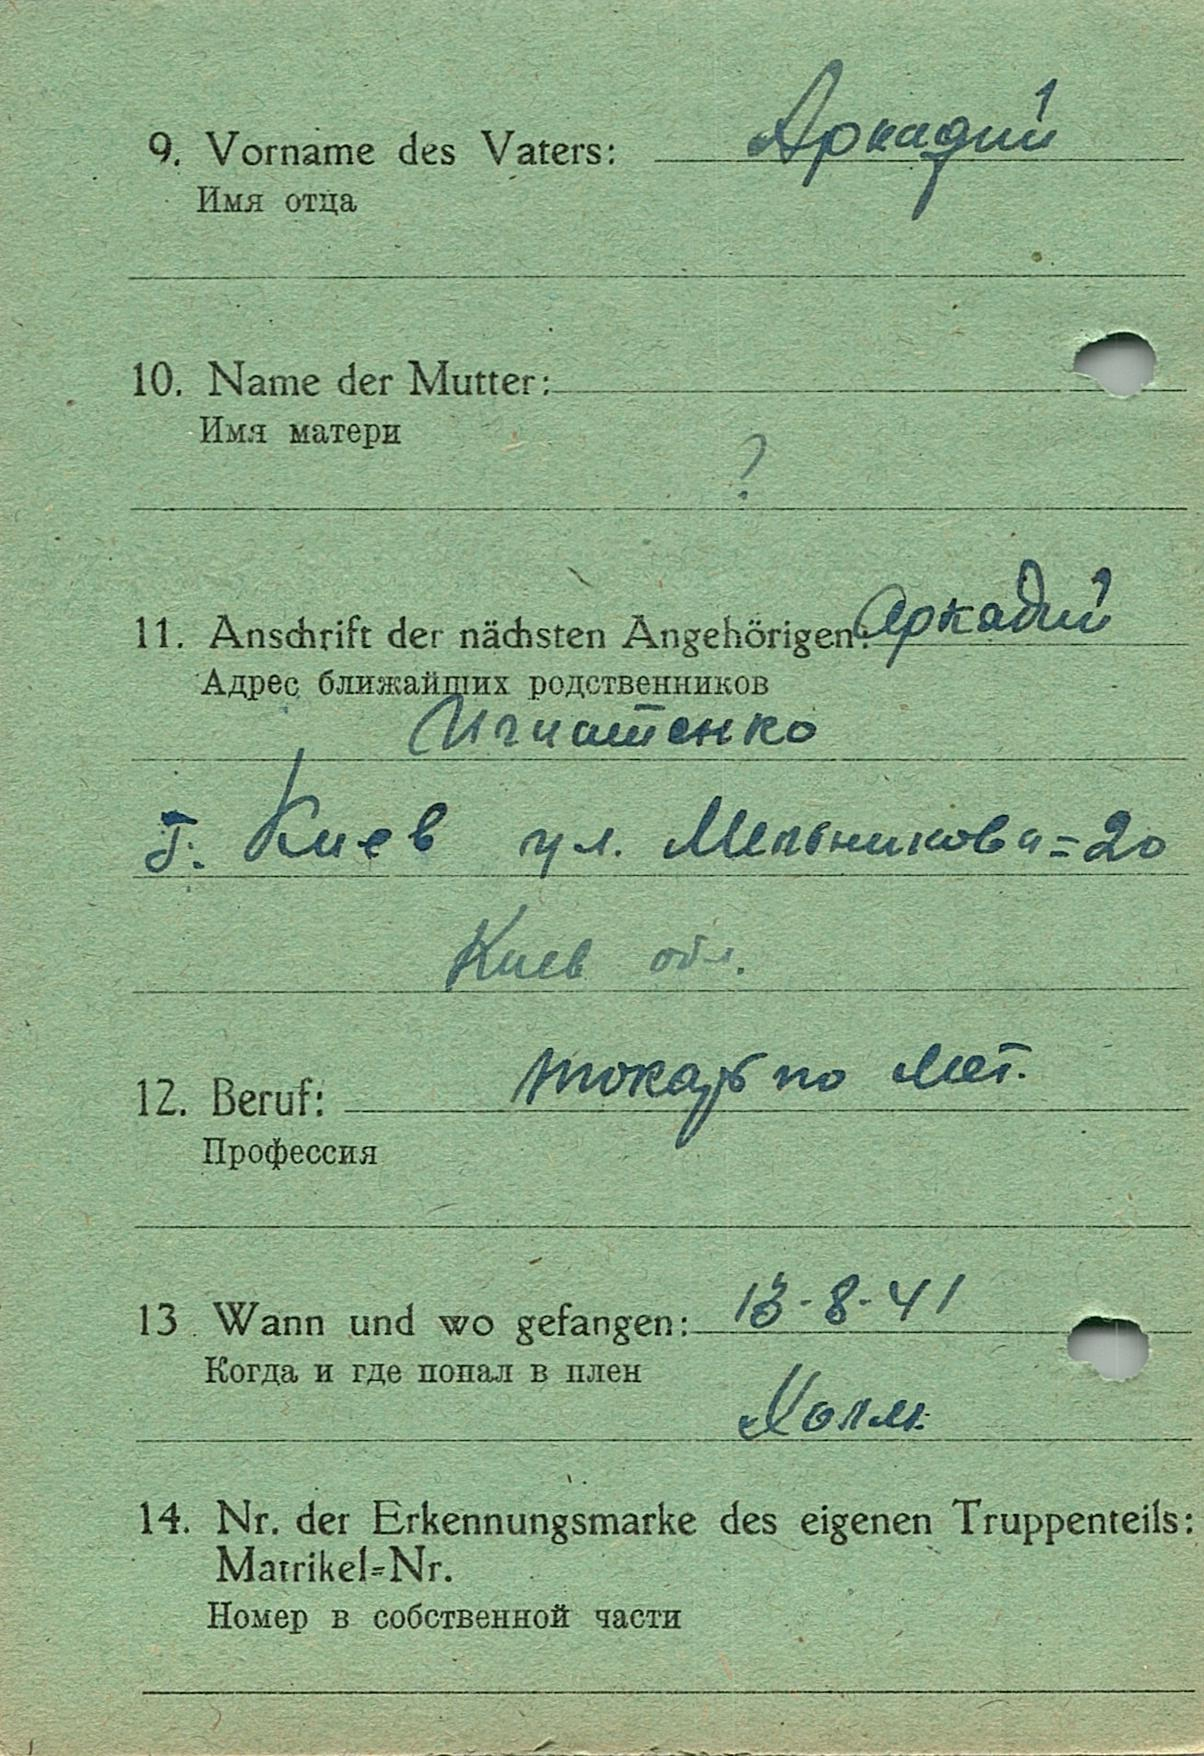 9. Vorname des Vaters: Аркадий
Имя отца
10. Name der Mutter:
Имя матери
?
11. Anschrift der nächsten Angehörigen: Аркадий
Адрес ближайших родственников
Игнатенко
г. Киев ул. Мельникова=20
Киев обл.
12. Beruf: токарь по мет.
Профессия
13. Wann und wo gefangen: 13-8-41
Когда и где попал в плен
Холм
14. Nr. der Erkennungsmarke des eigenen Truppenteils:
Matrikel=Nr.
Номер в собственной части